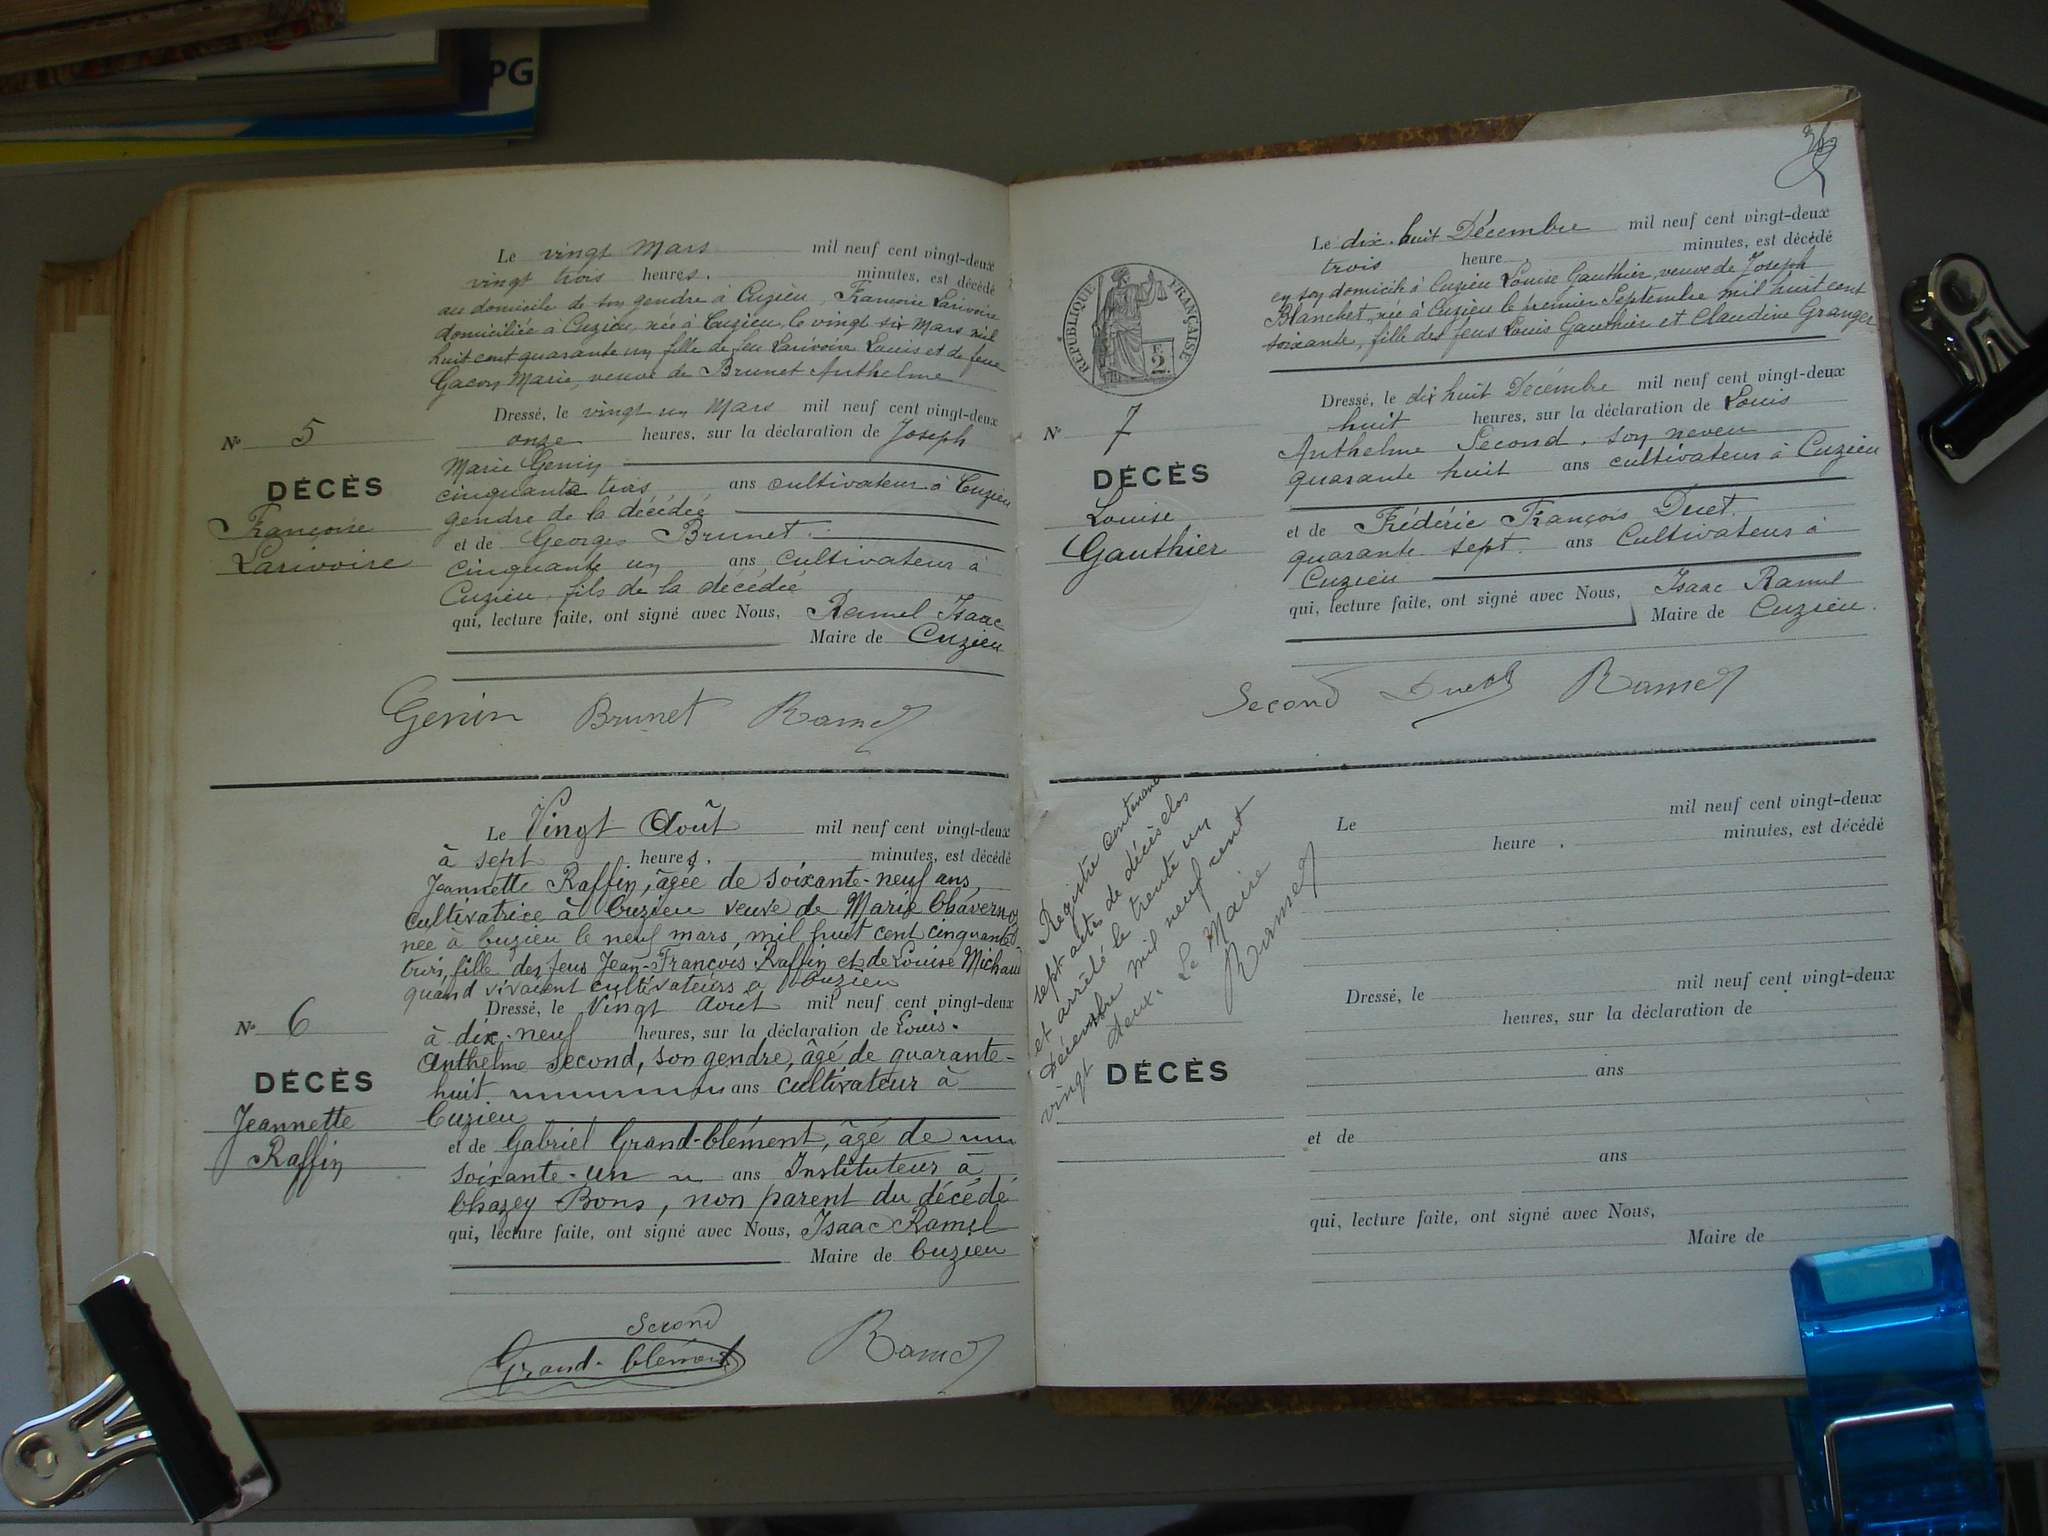 PG
Le vingt Mars mil neuf cent vingt-deux
vingt trois heures. minutes, est décédé
au domicile de son gendre à Cuzieu, Françoise Larivoire
domiciliée à Cuzieu, née à Cuzieu, le vingt six Mars mil
huit cent quarante un fille de feu Larivoire Louis et de feue
Gacon Marie, veuve de Brunet Anthelme
Dressé, le vingt un Mars mil neuf cent vingt-deux
onze heures, sur la déclaration de Joseph
Marie Genin
cinquante trois ans cultivateur à Cuzieu
gendre de la décédée
et de Georges Brunet
cinquante un ans cultivateur à
Cuzieu, fils de la décédée
qui, lecture faite, ont signé avec Nous, Ramel Isaac
Maire de Cuzieu
N° 5
DÉCÈS
Françoise
Larivoire
Genin Brunet Ramel
Le Vingt Août mil neuf cent vingt-deux
à sept heures. minutes, est décédé
Jeannette Raffin, âgée de soixante-neuf ans,
cultivatrice à Cuzieu veuve de Marie Chavernoz
née à Cuzieu le neuf mars, mil huit cent cinquante
trois, fille des feus Jean-François Raffin et de Louise Michaud
quand vivaient cultivateurs à Cuzieu
Dressé, le Vingt Août mil neuf cent vingt-deux
à dix-neuf heures, sur la déclaration de Louis-
Anthelme Second, son gendre, âgé de quarante-
huit ans cultivateur à
Cuzieu
et de Gabriel Grand-Clément, âgé de
soixante-un ans Instituteur à
Chazey Bons, non parent du décédé
qui, lecture faite, ont signé avec Nous, Isaac Ramel
Maire de Cuzieu
N° 6
DÉCÈS
Jeannette
Raffin
Second
Grand-Clément Ramel
RÉPUBLIQUE FRANÇAISE
2
Le dix-huit Décembre mil neuf cent vingt-deux
trois heure minutes, est décédé
en son domicile à Cuzieu Louise Gauthier, veuve de Joseph
Blanchet, née à Cuzieu le premier Septembre mil huit cent
soixante, fille des feus Louis Gauthier et Claudine Granger
Dressé, le dix huit Décembre mil neuf cent vingt-deux
huit heures, sur la déclaration de Louis
Anthelme Second, son neveu
quarante huit ans cultivateur à Cuzieu
et de Frédéric François Ducet
quarante sept ans Cultivateur à
Cuzieu
qui, lecture faite, ont signé avec Nous, Isaac Ramel
Maire de Cuzieu.
N° 7
DÉCÈS
Louise
Gauthier
Second Ramel
Registre contenant
sept actes de décès clos
et arrêté le trente un
Décembre mil neuf cent
vingt deux. Le Maire
Ramel
Le mil neuf cent vingt-deux
heure . minutes, est décédé
Dressé, le mil neuf cent vingt-deux
heures, sur la déclaration de
ans
et de
ans
qui, lecture faite, ont signé avec Nous,
Maire de
DÉCÈS